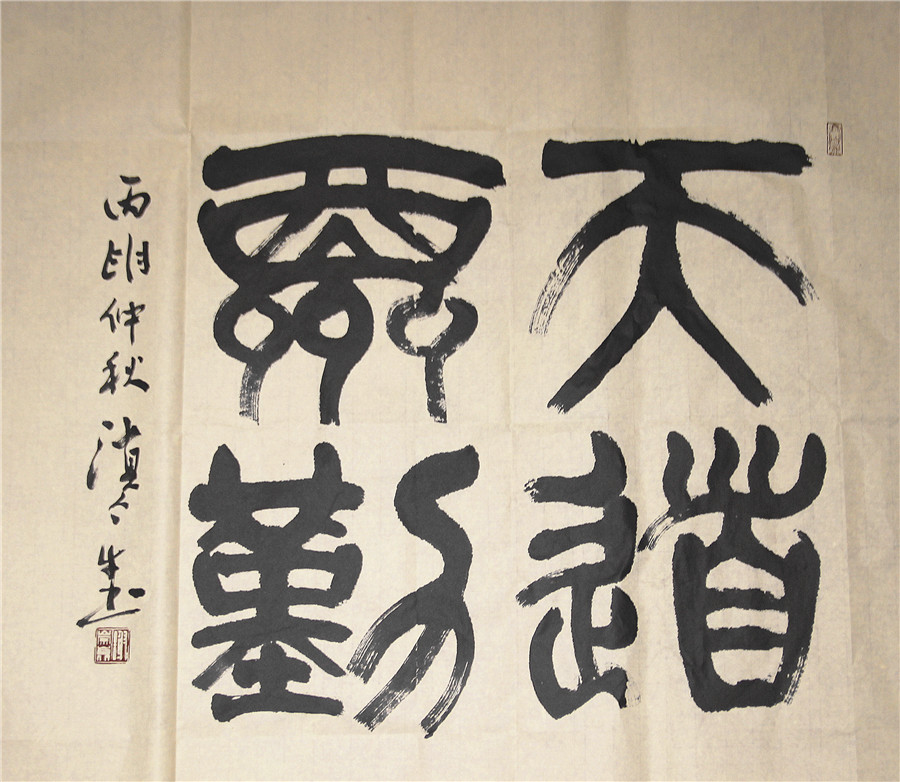 天道
酬勤
丙申仲秋